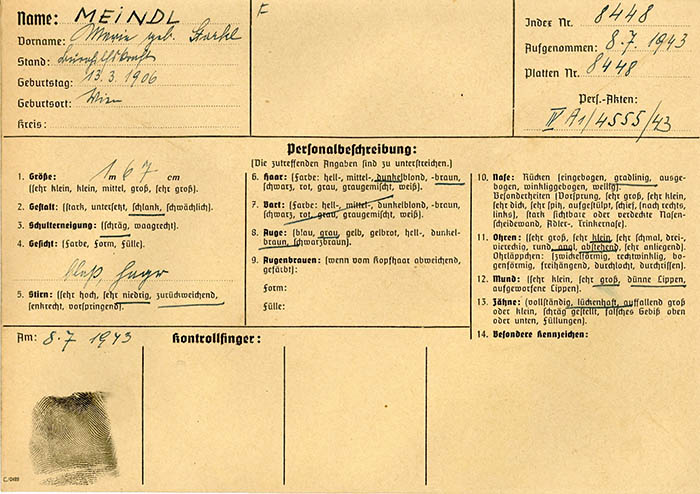 Name: MEINDL
Vorname: Marie geb.
Stand:
Geburtstag: 13.3.1906
Geburtsort: Wien
Kreis:
F
Index Nr. 8448
Aufgenommen: 8.7.1943
Platten Nr. 8448
Pers.-Akten:
IV A1/4555/43
Personalbeschreibung:
(Die zutreffenden Angaben sind zu unterstreichen.)
1. Größe: 1 m 67 cm
(sehr klein, klein, mittel, groß, sehr groß).
2. Gestalt: (stark, untersetzt, schlank, schwächlich).
3. Schulterneigung: (schräg, waagrecht).
4. Gesicht: (Farbe, Form, Fülle).
blaß, hager
5. Stirn: (sehr hoch, sehr niedrig, zurückweichend,
senkrecht, vorspringend).
6. Haar: (Farbe: hell-, mittel-, dunkelblond, -braun,
schwarz, rot, grau, graugemischt, weiß).
7. Bart: (Farbe: hell-, mittel-, dunkelblond, -braun,
schwarz, rot, grau, graugemischt, weiß).
8. Auge: (blau, grau, gelb, gelbrot, hell-, dunkel-
braun, schwarzbraun).
9. Augenbrauen: (wenn vom Kopfhaar abweichend,
gefärbt):
Form:
Fülle:
10. Nase: Rücken (eingebogen, gradlinig, ausge-
bogen, winkliggebogen, wellig).
Besonderheiten (Vorsprung, sehr groß, sehr klein,
sehr dick, sehr spitz, aufgestülpt, schief, nach rechts,
links), stark sichtbare oder verdeckte Nasen-
scheidewand, Adler-, Trinkernase).
11. Ohren: (sehr groß, sehr klein, sehr schmal, drei-,
viereckig, rund, anl. abstehend, sehr anliegend).
Ohrläppchen: (zwickelförmig, rechtwinklig, bo-
genförmig, freihängend, durchlocht, durchrissen).
12. Mund: (sehr klein, sehr groß, dünne Lippen,
aufgeworfene Lippen).
13. Zähne: (vollständig, lückenhaft, auffallend groß
oder klein, schräg gestellt, falsches Gebiß oben
oder unten, Füllungen).
14. Besondere Kennzeichen:
Am: 8.7 1943
Kontrollfinger: